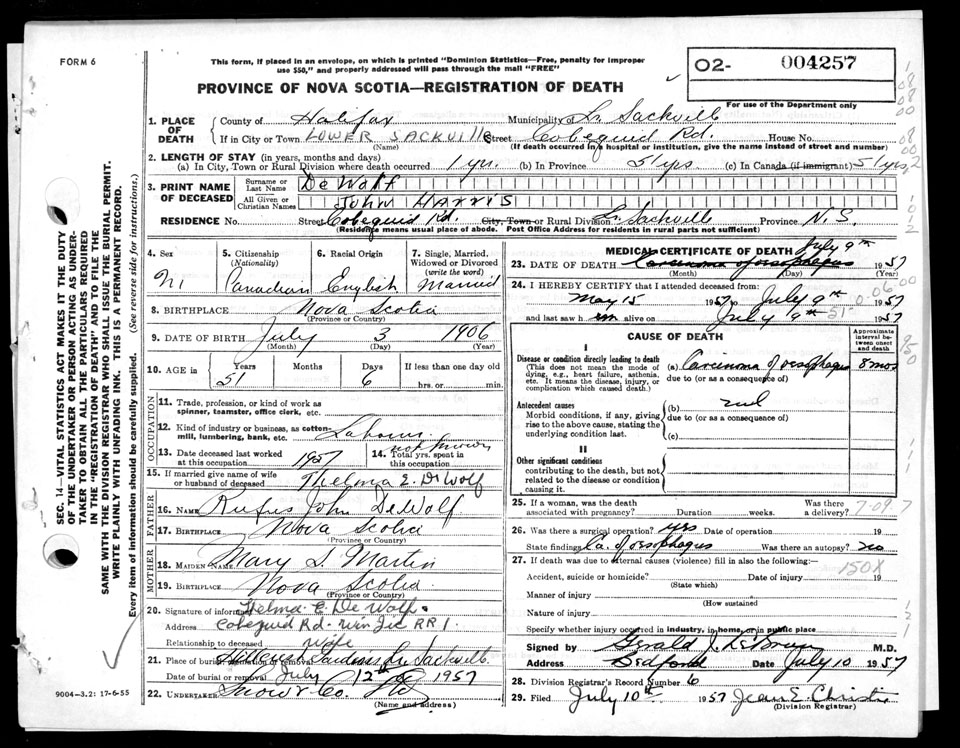 FORM 6
This form, if placed in an envelope, on which is printed "Dominion Statistics—Free, penalty for improper
use $50," and properly addressed will pass through the mail "FREE"
PROVINCE OF NOVA SCOTIA—REGISTRATION OF DEATH
02- 004257
For use of the Department only
1. PLACE OF DEATH
County of Halifax Municipality of Lr. Sackville
If in City or Town LOWER SACKVILLE Street Cobequid Rd. House No.
(Name) (If death occurred in a hospital or institution, give its name instead of street and number)
2. LENGTH OF STAY (in years, months and days)
(a) In City, Town or Rural Division where death occurred 1 yr. (b) In Province 51 yrs (c) In Canada (if immigrant) 51 yrs,
3. PRINT NAME OF DECEASED
Surname or Last Name De Wolf
All Given or Christian Names JOHN HARRIS
RESIDENCE No. Street Cobequid Rd. City, Town or Rural Division Lr. Sackville Province N.S.
(Residence means usual place of abode. Post Office Address for residents in rural parts not sufficient)
4. Sex
M
5. Citizenship
(Nationality)
Canadian
6. Racial Origin
English
7. Single, Married, Widowed or Divorced
(write the word)
Married
8. BIRTHPLACE Nova Scotia
(Province or Country)
9. DATE OF BIRTH July 3 1906
(Month) (Day) (Year)
10. AGE in Years Months Days If less than one day old
51 6 hrs. or min.
OCCUPATION
11. Trade, profession, or kind of work as
spinner, teamster, office clerk, etc.
12. Kind of industry or business, as cotton-
mill, lumbering, bank, etc. Labour
13. Date deceased last worked
at this occupation 1957
14. Total yrs. spent in
this occupation
15. If married give name of wife
or husband of deceased Thelma E. DeWolf
FATHER
16. NAME Rufus John DeWolf
17. BIRTHPLACE Nova Scotia
(Province or Country)
MOTHER
18. MAIDEN NAME Mary L. Martin
19. BIRTHPLACE Nova Scotia
(Province or Country)
20. Signature of informant Thelma E. De Wolf.
Address Cobequid Rd. Win Jic RR 1.
Relationship to deceased Wife
21. Place of burial, cremation or removal Lr Sackville
Date of burial or removal July 12th 1957
22. UNDERTAKER Snow & Co. Ltd
(Name and address)
9004-3.2: 17-6-55
MEDICAL CERTIFICATE OF DEATH
July 9th
23. DATE OF DEATH Carcinoma of esophagus 1957
(Month) (Day) (Year)
24. I HEREBY CERTIFY that I attended deceased from:
May 15 1957 to July 9th 1957
and last saw him alive on July 9th 1957
CAUSE OF DEATH
Approximate interval between onset and death
I
Disease or condition directly leading to death
(This does not mean the mode of dying, e.g., heart failure, asthenia, etc. It means the disease, injury, or complication which caused death.)
(a) Carcinoma of oesophagus 8 mos
due to (or as a consequence of)
Antecedent causes
Morbid conditions, if any, giving rise to the above cause, stating the underlying condition last.
(b) nil
due to (or as a consequence of)
(c)
II
Other significant conditions
contributing to the death, but not related to the disease or condition causing it.
25. If a woman, was the death
associated with pregnancy? Duration weeks. Was there a delivery?
7-09.7
26. Was there a surgical operation? yes Date of operation 19
State findings Ca. of oesophagus Was there an autopsy? no
27. If death was due to external causes (violence) fill in also the following:—
150X
Accident, suicide or homicide? Date of injury 19
(State which)
Manner of injury
(How sustained
Nature of injury
Specify whether injury occurred in industry, in home, or in public place
Signed by Gerald M.D.
Address Bedford Date July 10 1957
28. Division Registrar's Record Number 6
29. Filed July 10th 1957 Jean E. Christie
(Division Registrar)
SEC. 14—VITAL STATISTICS ACT MAKES IT THE DUTY
OF THE UNDERTAKER OR PERSON ACTING AS UNDER-
TAKER TO OBTAIN ALL THE PARTICULARS REQUIRED
IN THE "REGISTRATION OF DEATH" AND TO FILE THE
SAME WITH THE DIVISION REGISTRAR WHO SHALL ISSUE THE BURIAL PERMIT.
WRITE PLAINLY WITH UNFADING INK. THIS IS A PERMANENT RECORD.
Every item of information should be carefully supplied. (See reverse side for instructions.)